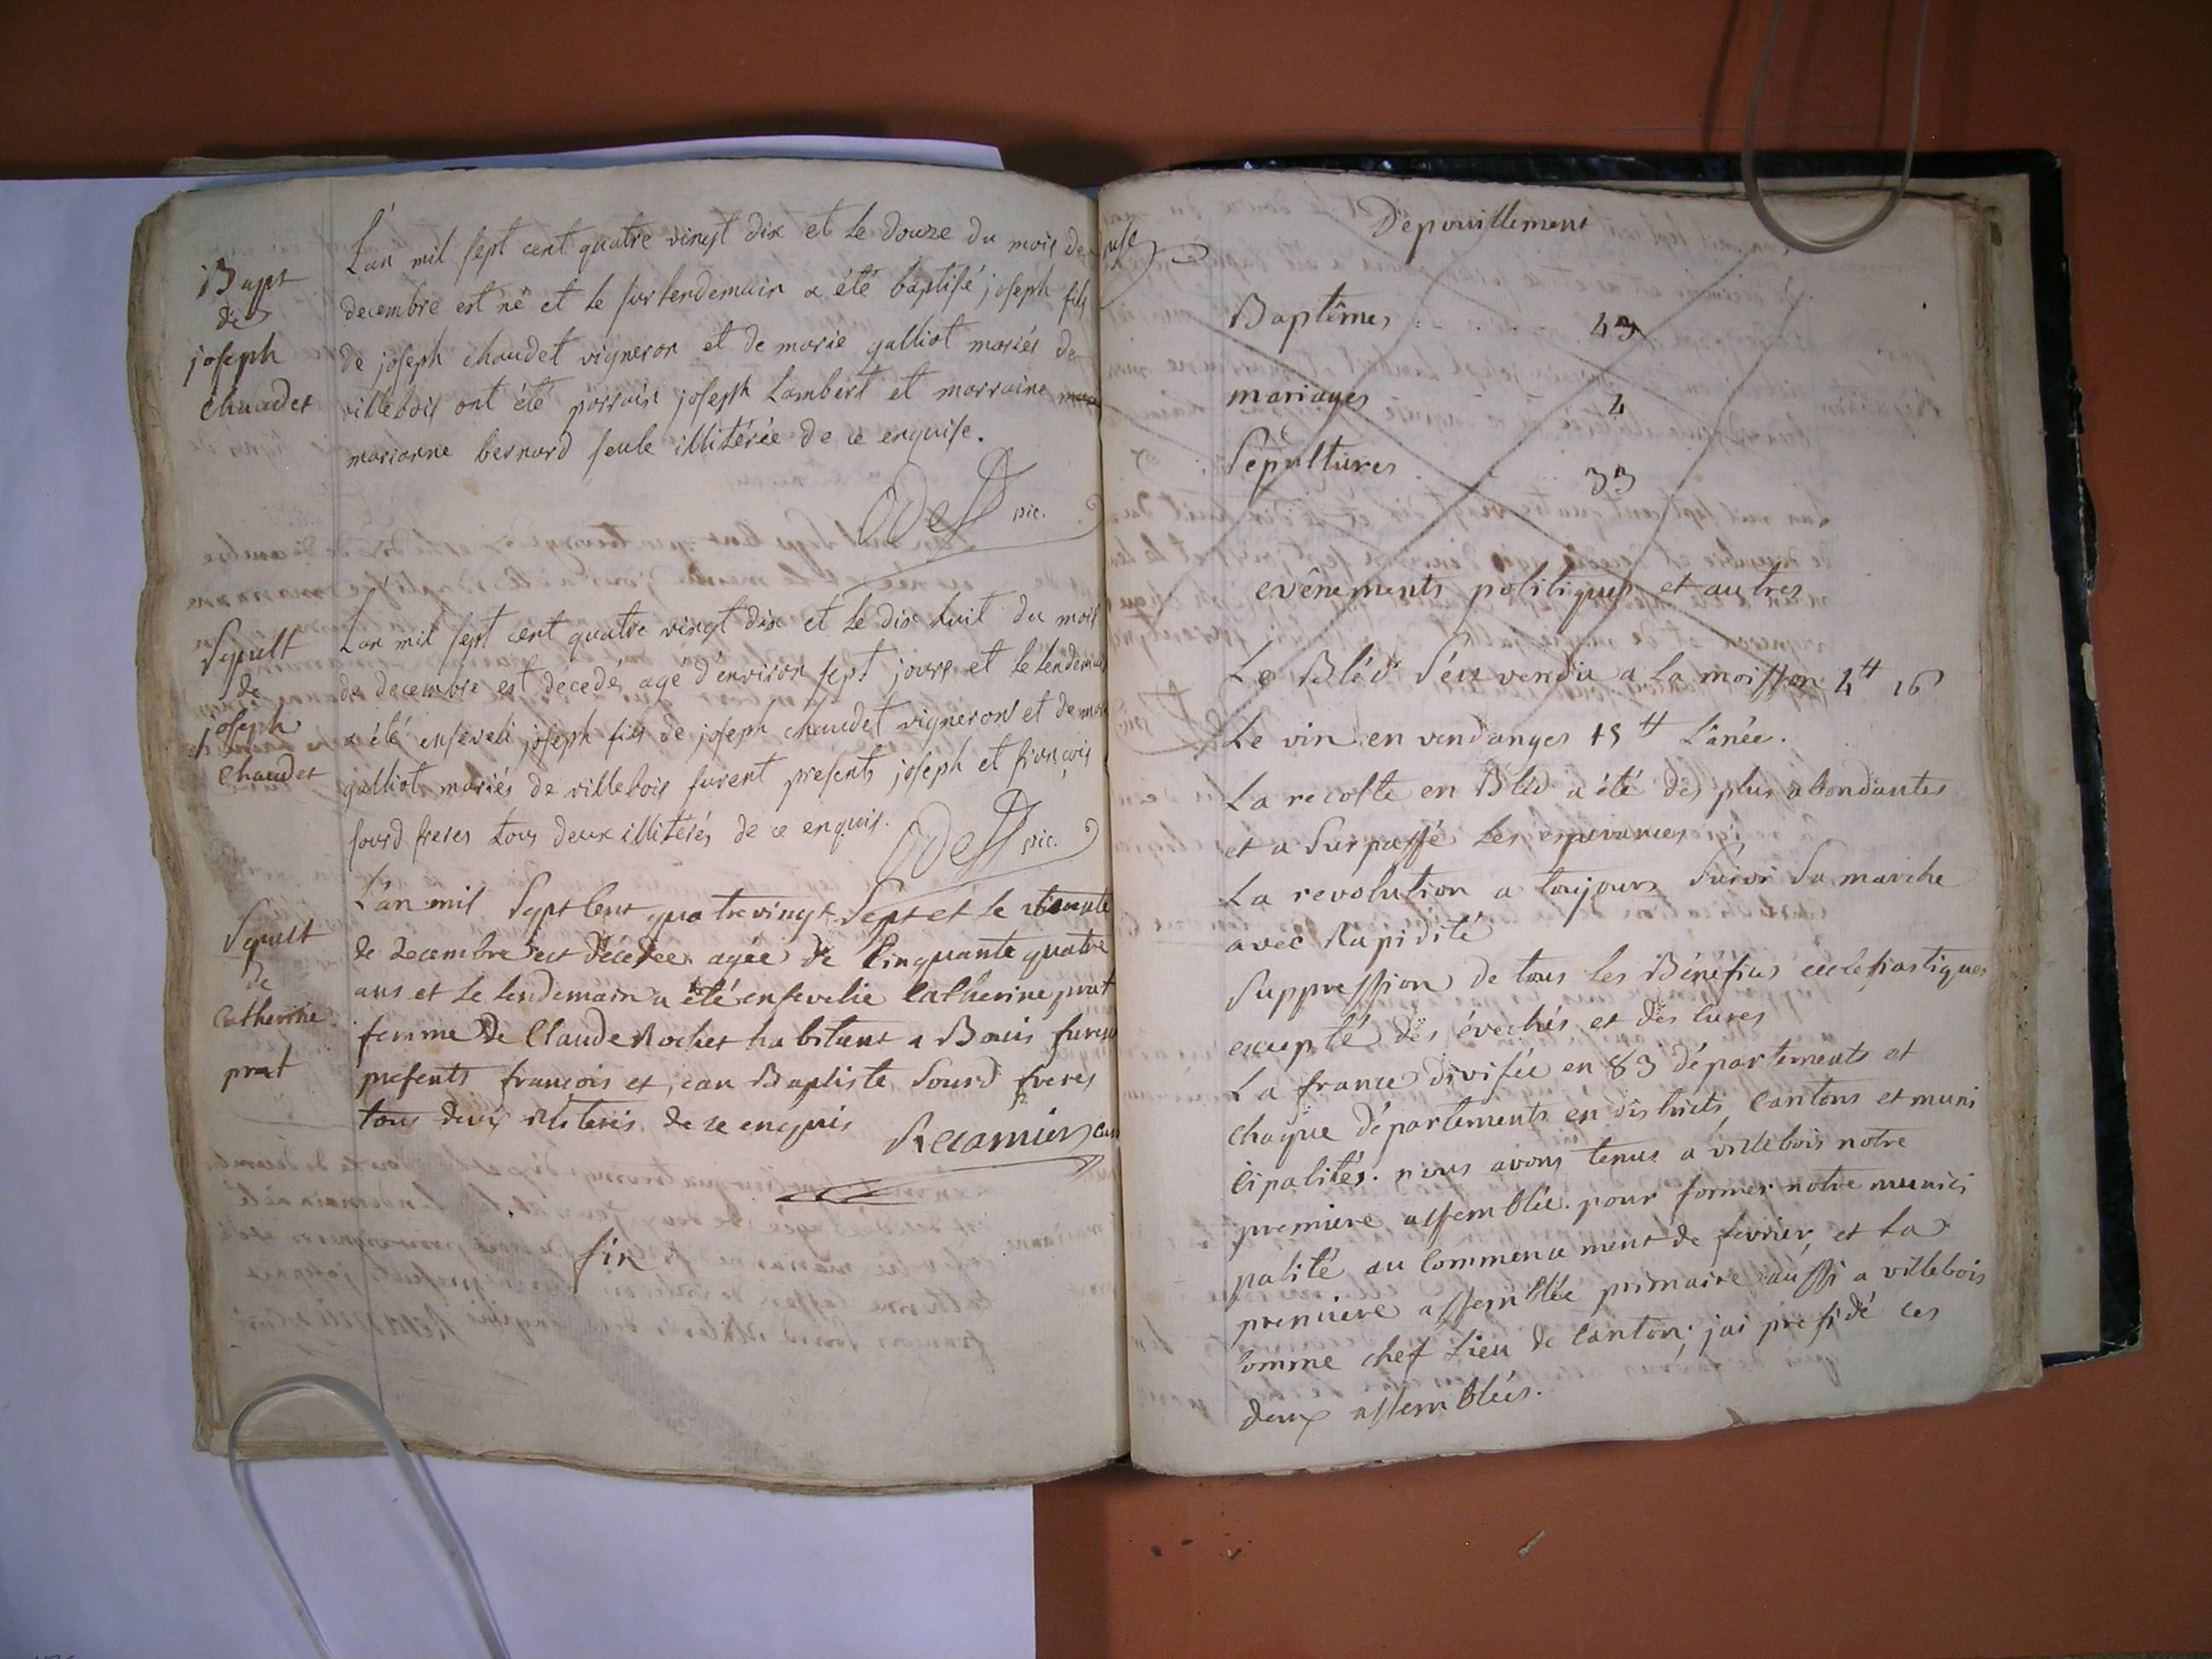 Bapt
de
joseph
chaudet
L'an mil sept cent quatre vingt dix et le douze du mois de
decembre est né et le surlendemain a été baptisé joseph fils
de joseph chaudet vigneron et de marie galliot mariés de
villebois ont été parrain joseph Lambert et marraine
marianne bernard seule illitérée de ce enquise.
vic.
Sepult
de
joseph
chaudet
L'an mil sept cent quatre vingt dix et le dix huit du mois
de decembre est decedé agé d'environ sept jours et le lendemain
a été enseveli joseph fils de joseph chaudet vigneron et de marie
galliot mariés de villebois furent presents joseph et françois
sourd freres tous deux illiterés de ce enquis.
vic.
Sepult
de
catherine
prat
L'an mil Sept Cent quatrevingt Sept et le trente
de decembre est décedée agée de Cinquante quatre
ans et le lendemain a été ensevelie Catherine prat
femme de Claude Rochet habitant a Bouis furent
presents françois et jean Baptiste Sourd freres
tous deux illiterés de ce enquis
Recamier curé
fin
Depouillement
Baptêmes 43
mariages 4
Sépultures 33
evênements politiques et autres
Le Bléd s'est vendu a la moisson 4tt 16
Le vin en vendanges 15tt L'anée.
La recolte en Bléd a été des plus abondantes
et a Surpassé les esperances
La revolution a toujours Suivi Sa marche
avec Rapidité
Suppression de tous les Bénéfices ecclesiastiques
excepté des évechés et des Cures
La france divisée en 83 départements et
chaque départements en districts, Cantons et muni
cipalités. nous avons tenus a villebois notre
premiere assemblée pour former notre munici
palité au Commencement de fevrier, et la
premiere assemblée primaire aussi a villebois
Comme chef Lieu de Canton; jai presidé ces
deux assemblées.